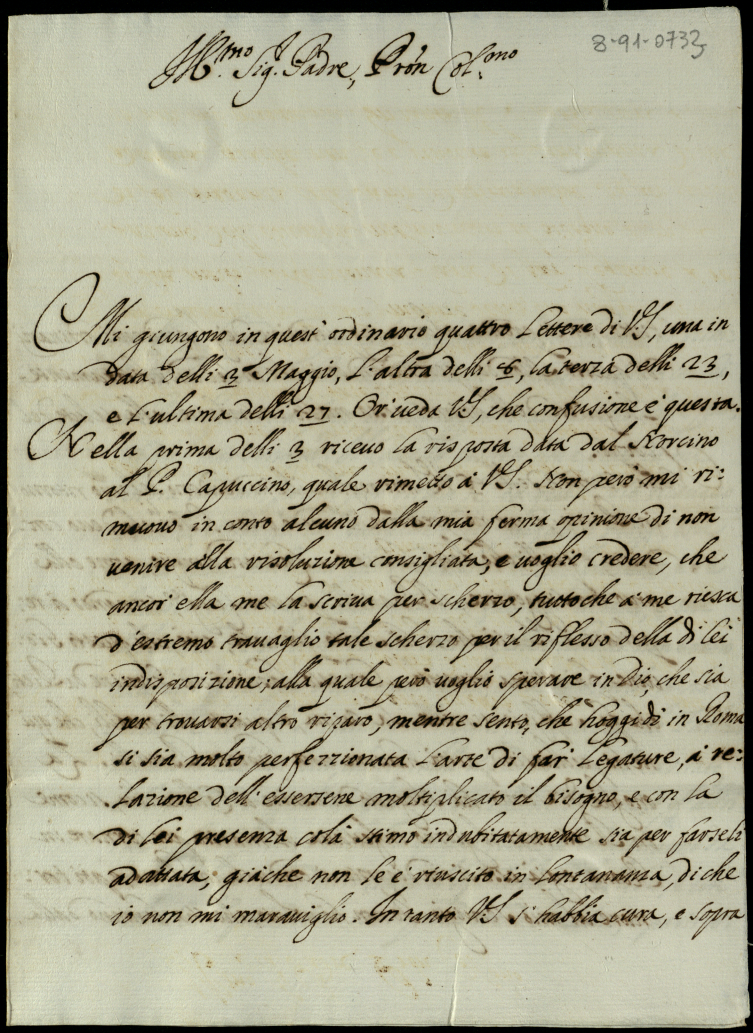 8-91-0732
Ill.mo Sig. Padre, Prõn Col.mo
Mi giungono in quest' ordinario quattro lettere di V.S, una in
data delli 3 Maggio, l'altra delli 6, la terza delli 23,
e l'ultima delli 27. Or' ueda V.S, che confusione è questa.
Nella prima delli 3 riceuo la risposta data dal Norcino
al P. Capuccino, quale rimetto à V.S. Non però mi ri:
muouo in conto alcuno dalla mia ferma opinione di non
uenire alla risoluzione consigliata, e uoglio credere, che
ancor' ella me la scriua per scherzo, tuttoche à me riesca
d'estremo trauaglio tale scherzo per il riflesso della di lei
indisposizione, alla quale però uoglio sperare in Dio, che sia
per trouarsi altro riparo, mentre sento, che hoggidì in Roma
si sia molto perfezzionata l'arte di far' legature, à re:
lazione dell' essersene moltiplicato il bisogno, e con la
di lei presenza colà stimo indubitatamente sia per farseli
adattata, giàche non le è riuscito in lontananza, di che
io non mi marauiglio. In tanto V.S s'habbia cura, e sopra